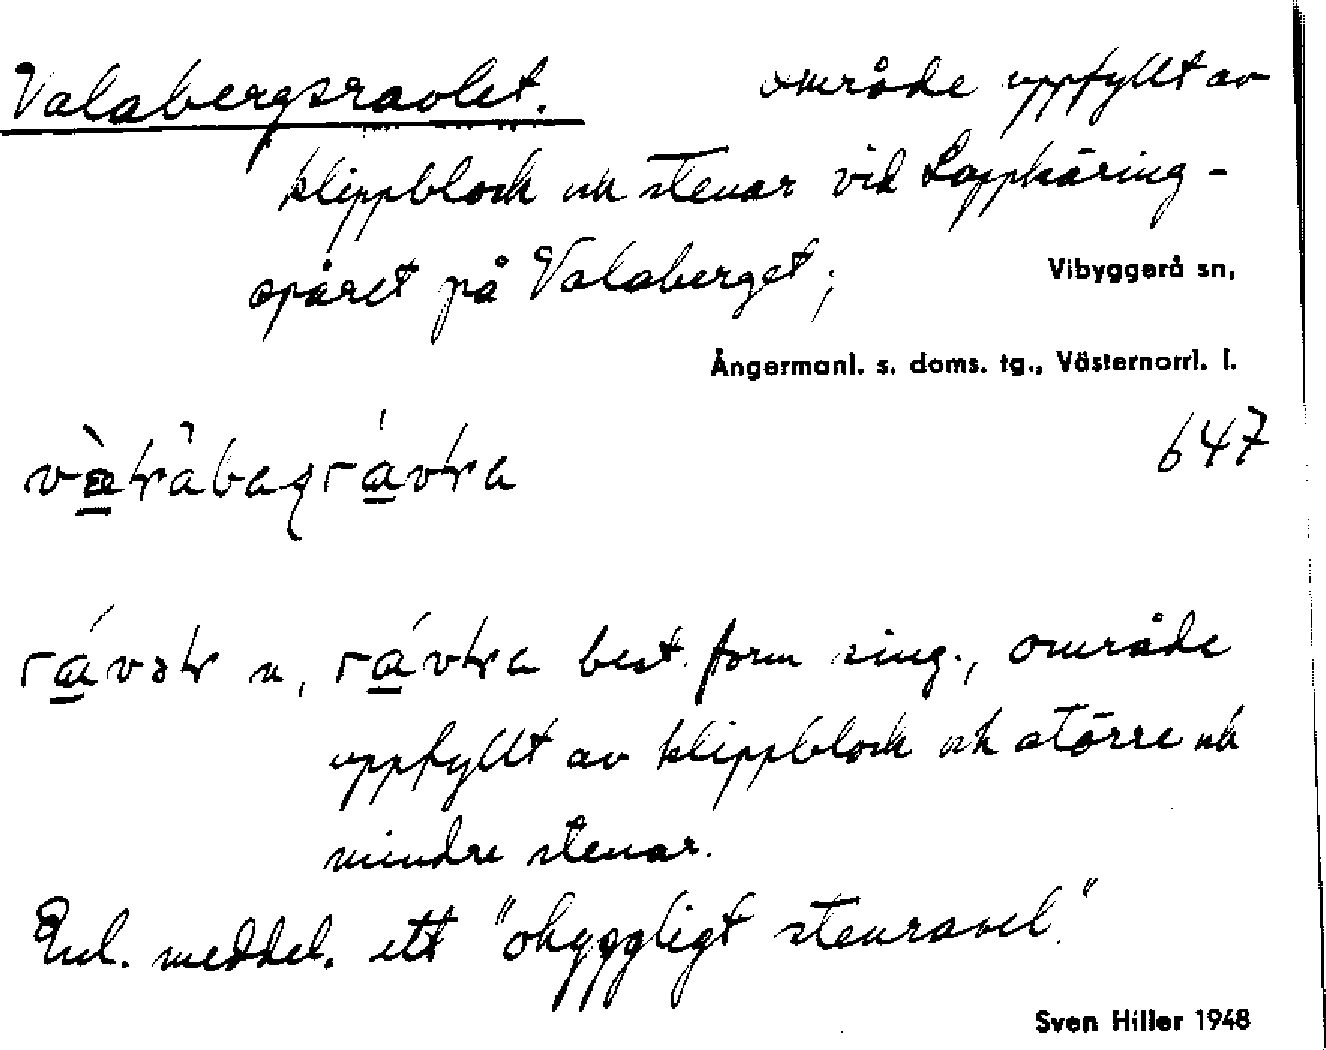 Valabergsravlet. område uppfyllt av
klippblock och stenar vid Lappkäring-
spåret på Valaberget;
Vibyggerå sn,
Ångermanl. s. doms. tg., Västernorrl. l.
647
n, best. form sing., område
uppfyllt av klippblock och större och
mindre stenar.
Enl. meddel. ett "ohyggligt stenravel."
Sven Hiller 1948